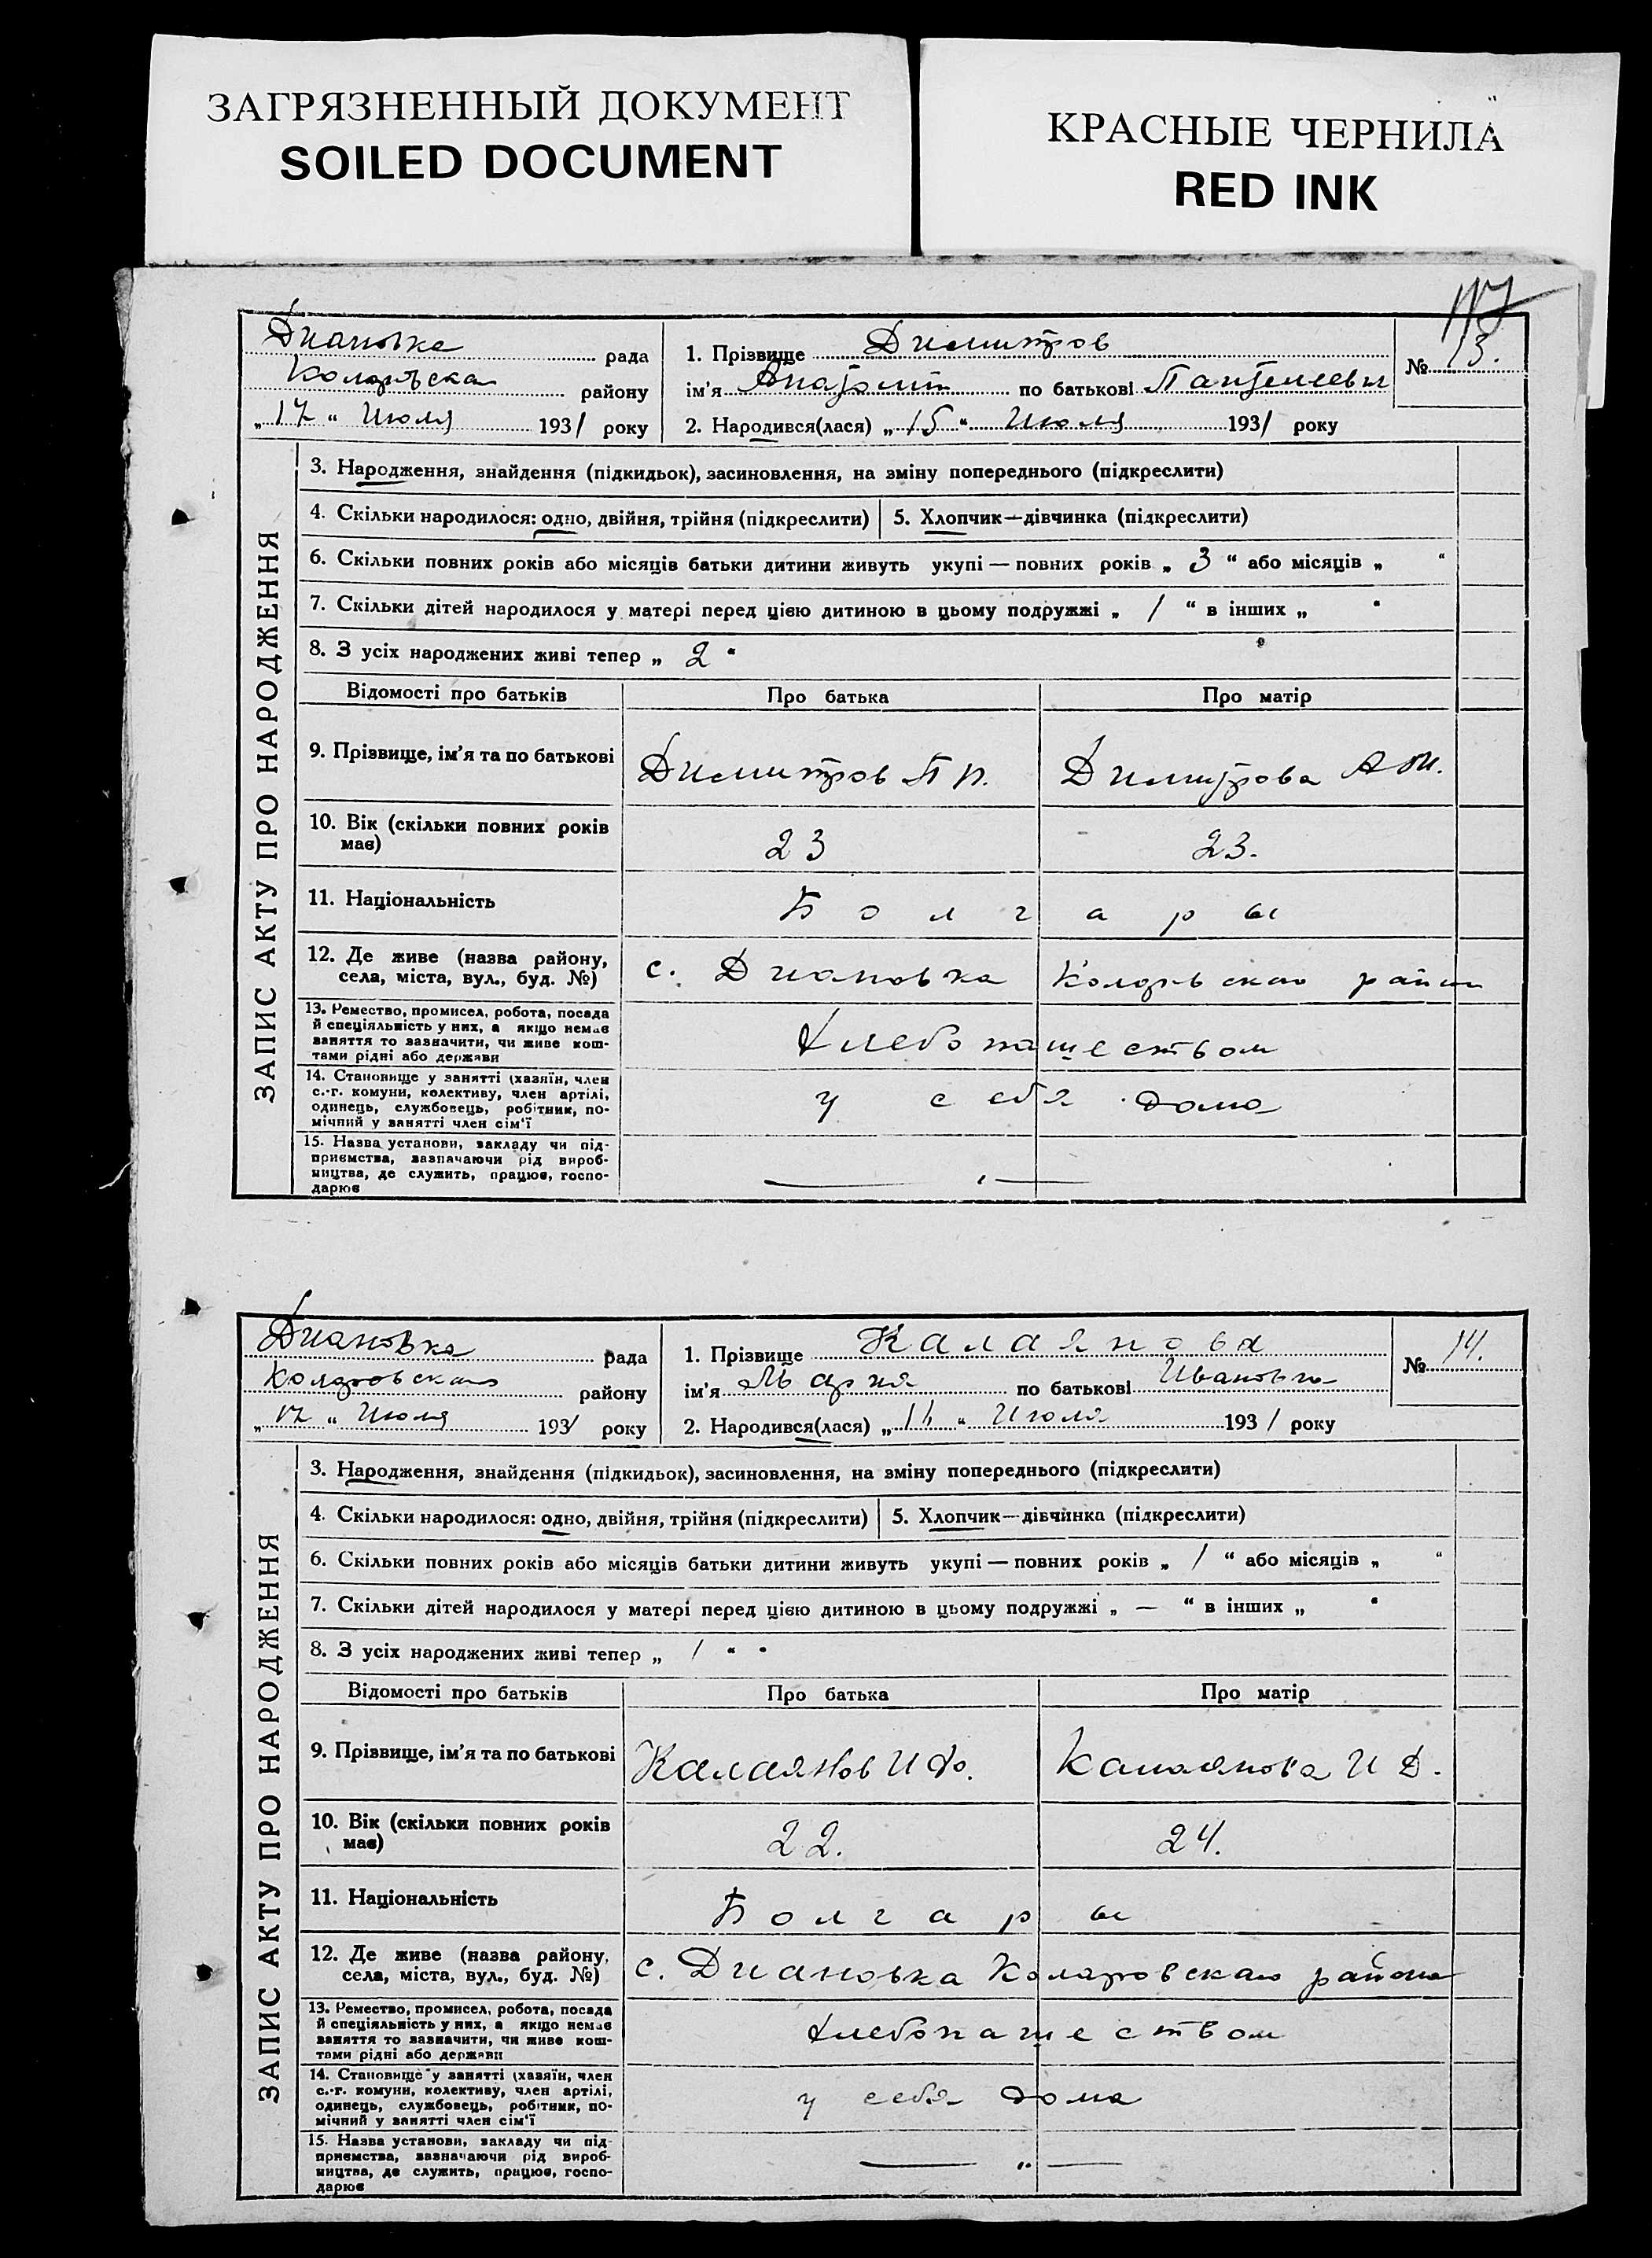 ЗАГРЯЗНЕННЫЙ ДОКУМЕНТ
SOILED DOCUMENT
КРАСНЫЕ ЧЕРНИЛА
RED INK
117
Диановка рада
района
„17“ Июля 1931 року
1. Прізвище Димитров
ім'я по батькові
2. Народився(лася) „15“ Июля 1931 року
№ 13.
ЗАПИС АКТУ ПРО НАРОДЖЕННЯ
3. Народження, знайдення (підкидьок), засиновлення, на зміну попереднього (підкреслити)
4. Скільки народилося: одно, двійня, трійня (підкреслити)
5. Хлопчик—дівчинка (підкреслити)
6. Скільки повних років або місяців батьки дитини живуть укупі — повних років „ 3 “ або місяців „ “
7. Скільки дітей народилося у матері перед цією дитиною в цьому подружжі „ 1 “ в інших „ “
8. З усіх народжених живі тепер „ 2 “
Відомості про батьків
Про батька
Про матір
9. Прізвище, ім'я та по батькові
Димитров П П.
Димитрова А М.
10. Вік (скільки повних років має)
23
23.
11. Національність
Болгары
12. Де живе (назва району, села, міста, вул., буд. №)
с. Диановка
13. Ремество, промисел, робота, посада й спеціяльність у них, а якщо немає заняття то зазначити, чи живе коштами рідні або держави
Хлебопашеством
14. Становище у занятті (хазяїн, член с.-г. комуни, колективу, член артілі, одинець, службовець, робітник, помічний у занятті член сім'ї
у себя дома
15. Назва установи, закладу чи підприємства, зазначаючи рід виробництва, де служить, працює, господарює
— „ —
Диановка рада
Коларовского району
„17“ Июля 1931 року
1. Прізвище Калаянова
ім'я Мария по батькові Ивановна
2. Народився(лася) „ “ Июля 1931 року
№ 14.
ЗАПИС АКТУ ПРО НАРОДЖЕННЯ
3. Народження, знайдення (підкидьок), засиновлення, на зміну попереднього (підкреслити)
4. Скільки народилося: одно, двійня, трійня (підкреслити)
5. Хлопчик—дівчинка (підкреслити)
6. Скільки повних років або місяців батьки дитини живуть укупі — повних років „ 1 “ або місяців „ “
7. Скільки дітей народилося у матері перед цією дитиною в цьому подружжі „ — “ в інших „ “
8. З усіх народжених живі тепер „ 1 “ “
Відомості про батьків
Про батька
Про матір
9. Прізвище, ім'я та по батькові
Калаянов И Ф.
Калаянова И Д.
10. Вік (скільки повних років має)
22.
24.
11. Національність
Болгары
12. Де живе (назва району, села, міста, вул., буд. №)
с. Диановка Коларовского района
13. Ремество, промисел, робота, посада й спеціяльність у них, а якщо немає заняття то зазначити, чи живе коштами рідні або держави
Хлебопашеством
14. Становище у занятті (хазяїн, член с.-г. комуни, колективу, член артілі, одинець, службовець, робітник, помічний у занятті член сім'ї
у себя дома
15. Назва установи, закладу чи підприємства, зазначаючи рід виробництва, де служить, працює, господарює
— „ —